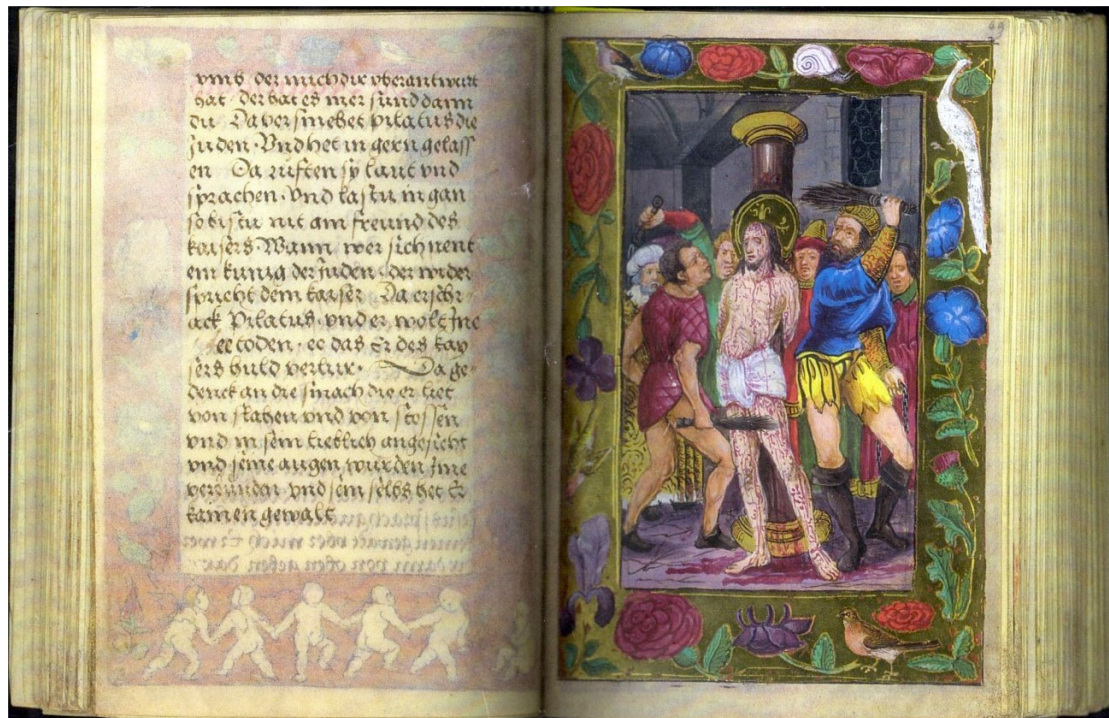 vmb der mich dir vberantwurt
hat der hat es mer sünd dann
du Da versmehet pilatus die
Juden Vnd het in gern gelass
en Da rufften sy laut vnd
sprachen Vnd lastu in gan
so bistu nit am freund des
kaisers Wann wer sich nent
ein kunig der Juden der wider
spricht dem kaiser Da erschr
ack Pilatus vnd er wolt Jne
ee toden ee das Er des kay
sers huld verlur Da ge
denck an die smach die er liet
von slahen vnd von stossen
vnd in sein lieblich angesicht
vnd seine augen wurden Jme
verpunden vnd sein selbs het Er
kainen gewalt